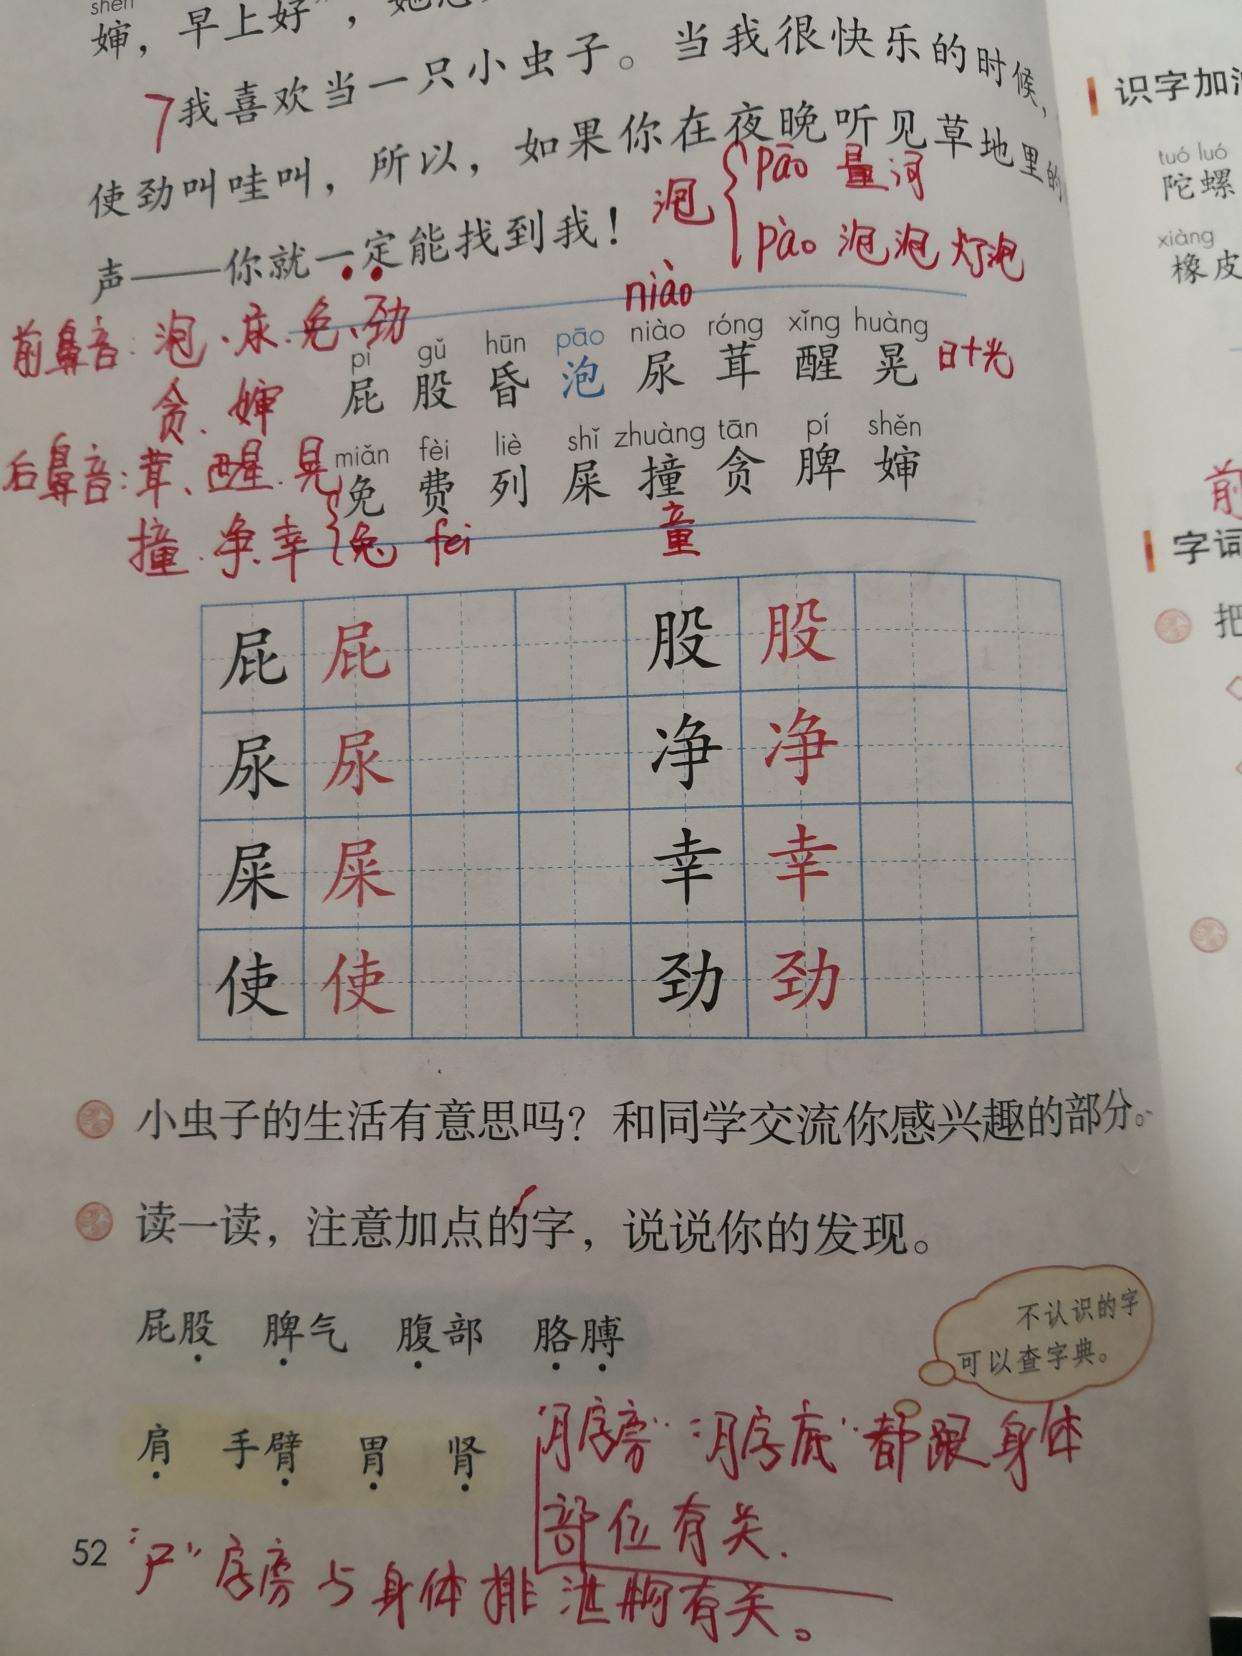 shěn
婶，早上好”，
7 我喜欢当一只小虫子。当我很快乐的时候，
使劲叫哇叫，所以，如果你在夜晚听见草地里的
泡 pāo 量词
声——你就一定能找到我！
pào 泡泡 灯泡
niào
前鼻音：泡、尿、免、劲
贪、婶
pì gǔ hūn pāo niào róng xǐng huàng
屁 股 昏 泡 尿 茸 醒 晃 日+光
后鼻音：茸、醒、晃
撞、净、幸
miǎn fèi liè shǐ zhuàng tān pí shěn
免 费 列 屎 撞 贪 脾 婶
兔 fei 童
屁 屁 股 股
尿 尿 净 净
屎 屎 幸 幸
使 使 劲 劲
小虫子的生活有意思吗？和同学交流你感兴趣的部分。
读一读，注意加点的字，说说你的发现。
屁股 脾气 腹部 胳膊
不认识的字
可以查字典。
肩 手臂 胃 肾
“月字旁”“月字底”都跟身体
部位有关.
52
“尸”字旁与身体排泄物有关。
识字加油
tuó luó
陀螺
xiàng
橡皮
前
字词
把